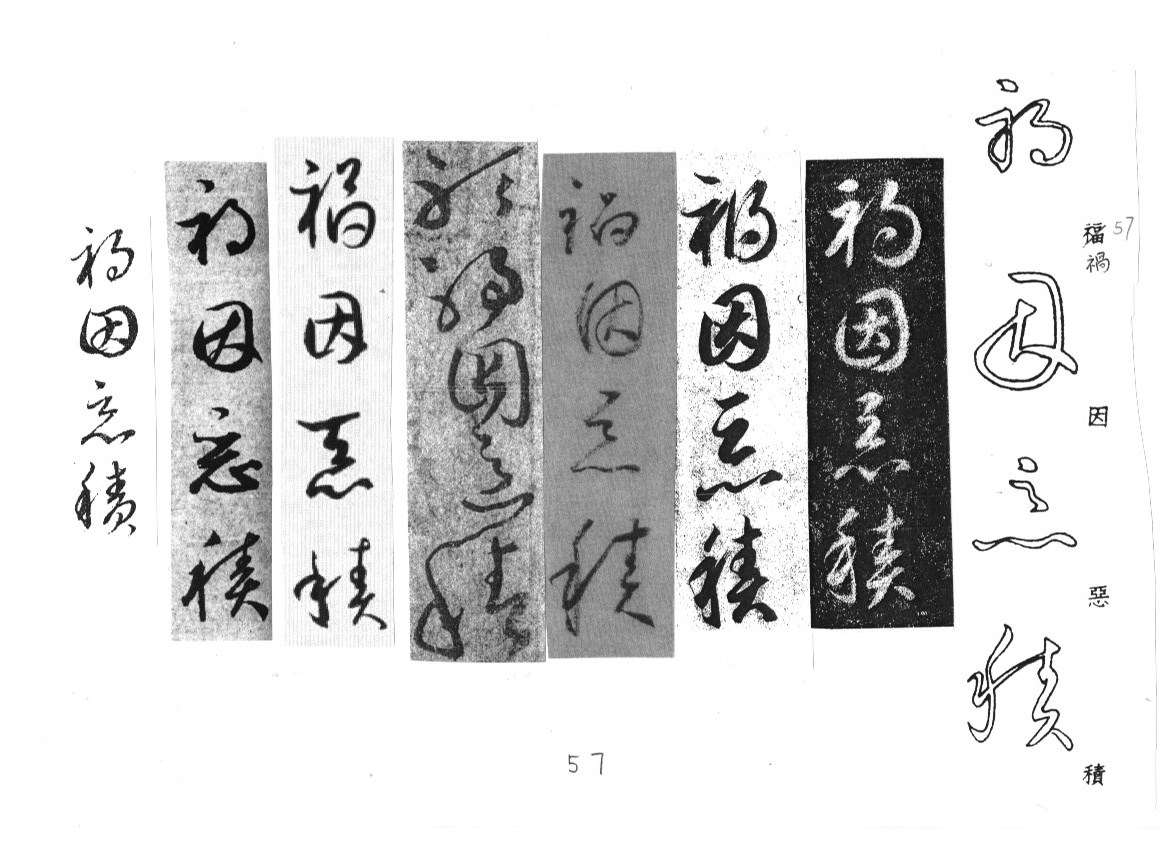 57
福禍因惡積
禍因惡積
禍因惡積
禍因惡積
禍因惡積
禍因惡積
禍因惡積
禍因惡積
禍因惡積
57